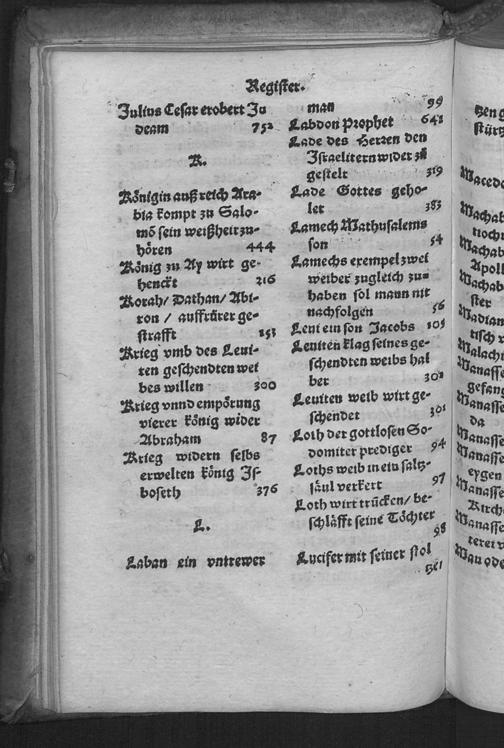 Register.
Julius Cesar erobert Ju
deam 752
K.
Königin auß reich Ara-
bia kompt zu Salo-
mō sein weißheit zu-
hören 444
König zu Ay wirt ge-
henckt 216
Korah/ Dathan/ Abi-
ron / auffrürer ge-
strafft 153
Krieg vmb des Leui-
ten geschendten wei
bes willen 300
Krieg vnnd empörung
vierer könig wider
Abraham 87
Krieg widern selbs
erwelten könig Is-
boseth 376
L.
Laban ein vntrewer
man 99
Labdon Prophet 641
Lade des Herren den
Israelitern wider zů
gestelt 319
Lade Gottes geho-
let 383
Lamech Mathusalems
son 54
Lamechs exempel zwei
weiber zugleich zu-
haben sol mann nit
nachfolgen 56
Leui ein son Jacobs 105
Leuiten klag seines ge-
schendten weibs hal
ber 301
Leuiten weib wirt ge-
schendet 301
Loth der gottlosen So-
domiter prediger 94
Loths weib in ein saltz-
säul verkert 97
Loth wirt trücken/ be-
schläfft seine Töchter
98
Lucifer mit seiner stol
tzen g
stürtz
Macedo
Machab
Machab
Apoll
Machab
ster
Madian
tisch v
Malach
Manasse
gefang
Manasse
da
Manasse
Manasse
eygen
Manasse
Kirch
Manasse
teret v
Man ode